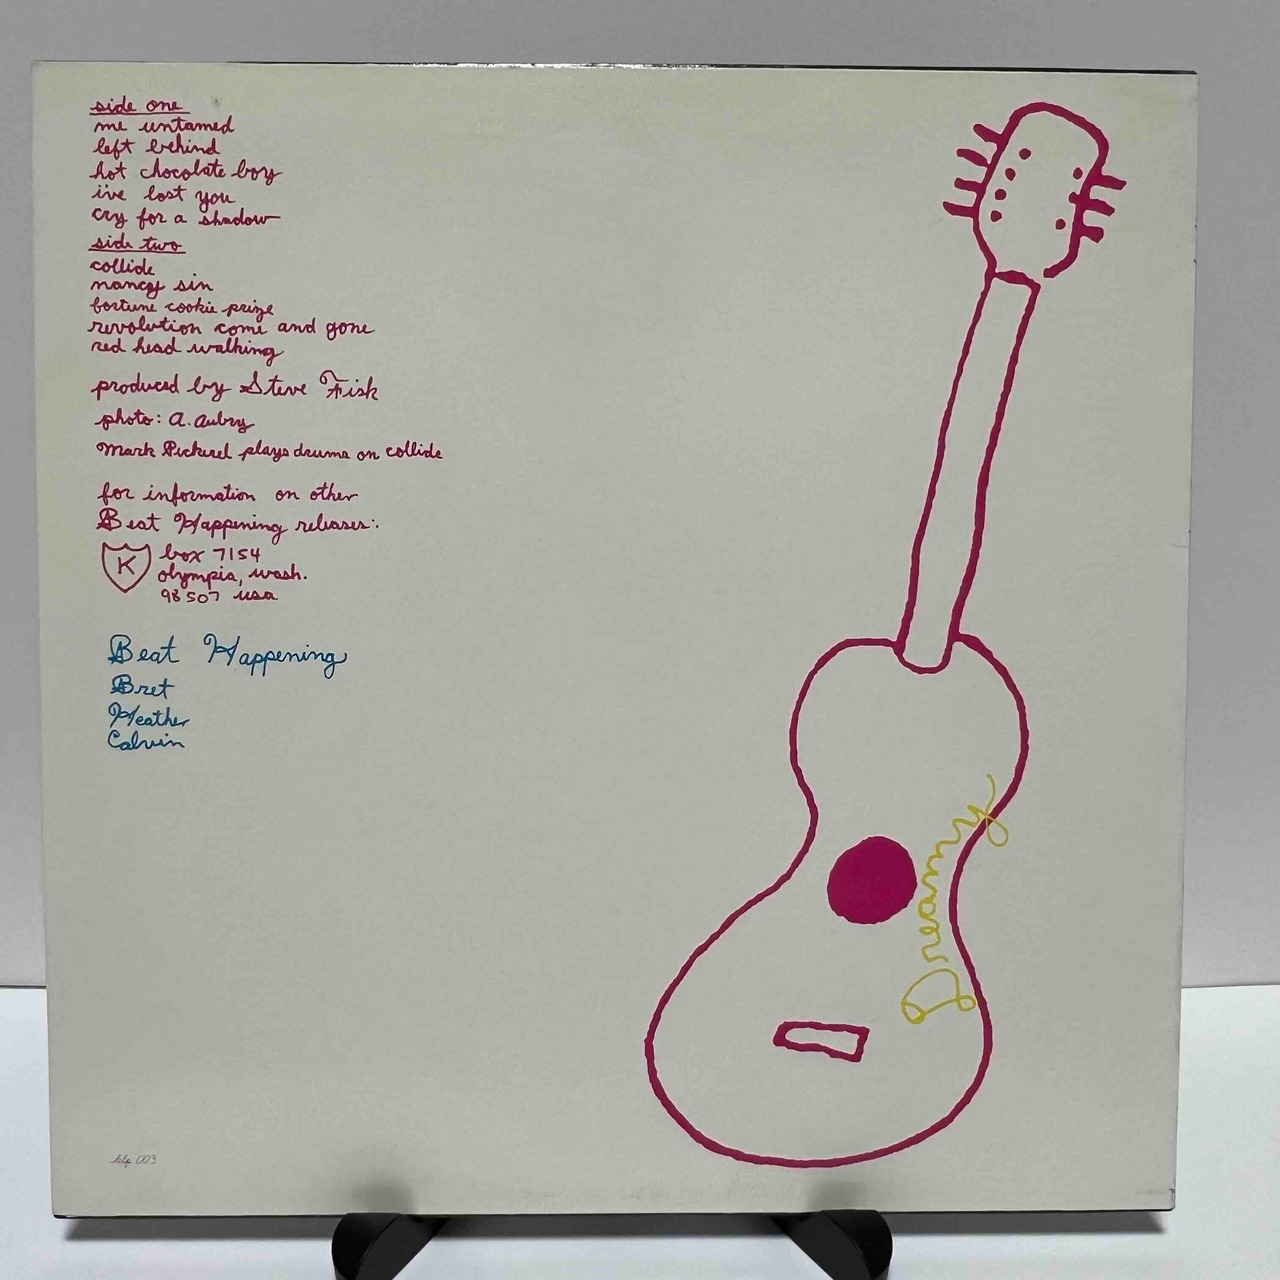 side one
me untamed
left behind
hot chocolate boy
i've lost you
cry for a shadow
side two
collide
nancy sin
fortune cookie prize
revolution come and gone
red head walking
produced by Steve Fisk
photo: a. aubry
Mark Pickerel plays drums on collide
for information on other
Beat Happening releases:
K
box 7154
olympia, wash.
98507 usa
Beat Happening
Bret
Heather
Calvin
Dreamy
klp 003